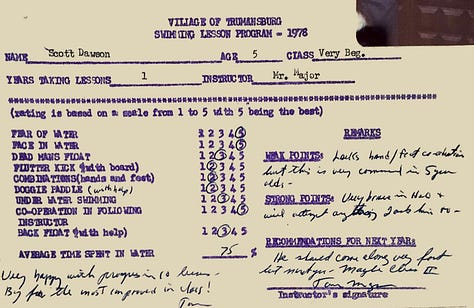 VILLAGE OF TRUMANSBURG
SWIMMING LESSON PROGRAM - 1978
NAME Scott Dawson AGE 5 CLASS Very Beg.
YEARS TAKING LESSONS 1 INSTRUCTOR Mr. Major
(rating is based on a scale from 1 to 5 with 5 being the best)
FEAR OF WATER 1 2 3 4 5
FACE IN WATER 1 2 3 4 5
DEAD MANS FLOAT 1 2 3 4 5
FLUTTER KICK (with board) 1 2 3 4 5
COMBINATIONS (hands and feet) 1 2 3 4 5
DOGGIE PADDLE (with help) 1 2 3 4 5
UNDER WATER SWIMMING 1 2 3 4 5
CO-OPERATION IN FOLLOWING INSTRUCTOR 1 2 3 4 5
BACK FLOAT (with help) 1 2 3 4 5
AVERAGE TIME SPENT IN WATER 75 %
Very happy with progress in
By far the most improved in class!
Tom
REMARKS
WEAK POINTS: Lacks hand/foot
but this is very common in 5 year
olds -
STRONG POINTS: Very brave in H2O &
will attempt anything I ask him to -
RECOMMENDATIONS FOR NEXT YEAR:
He should come along very fast
next year - Maybe Class II
Tom
Instructor's signature